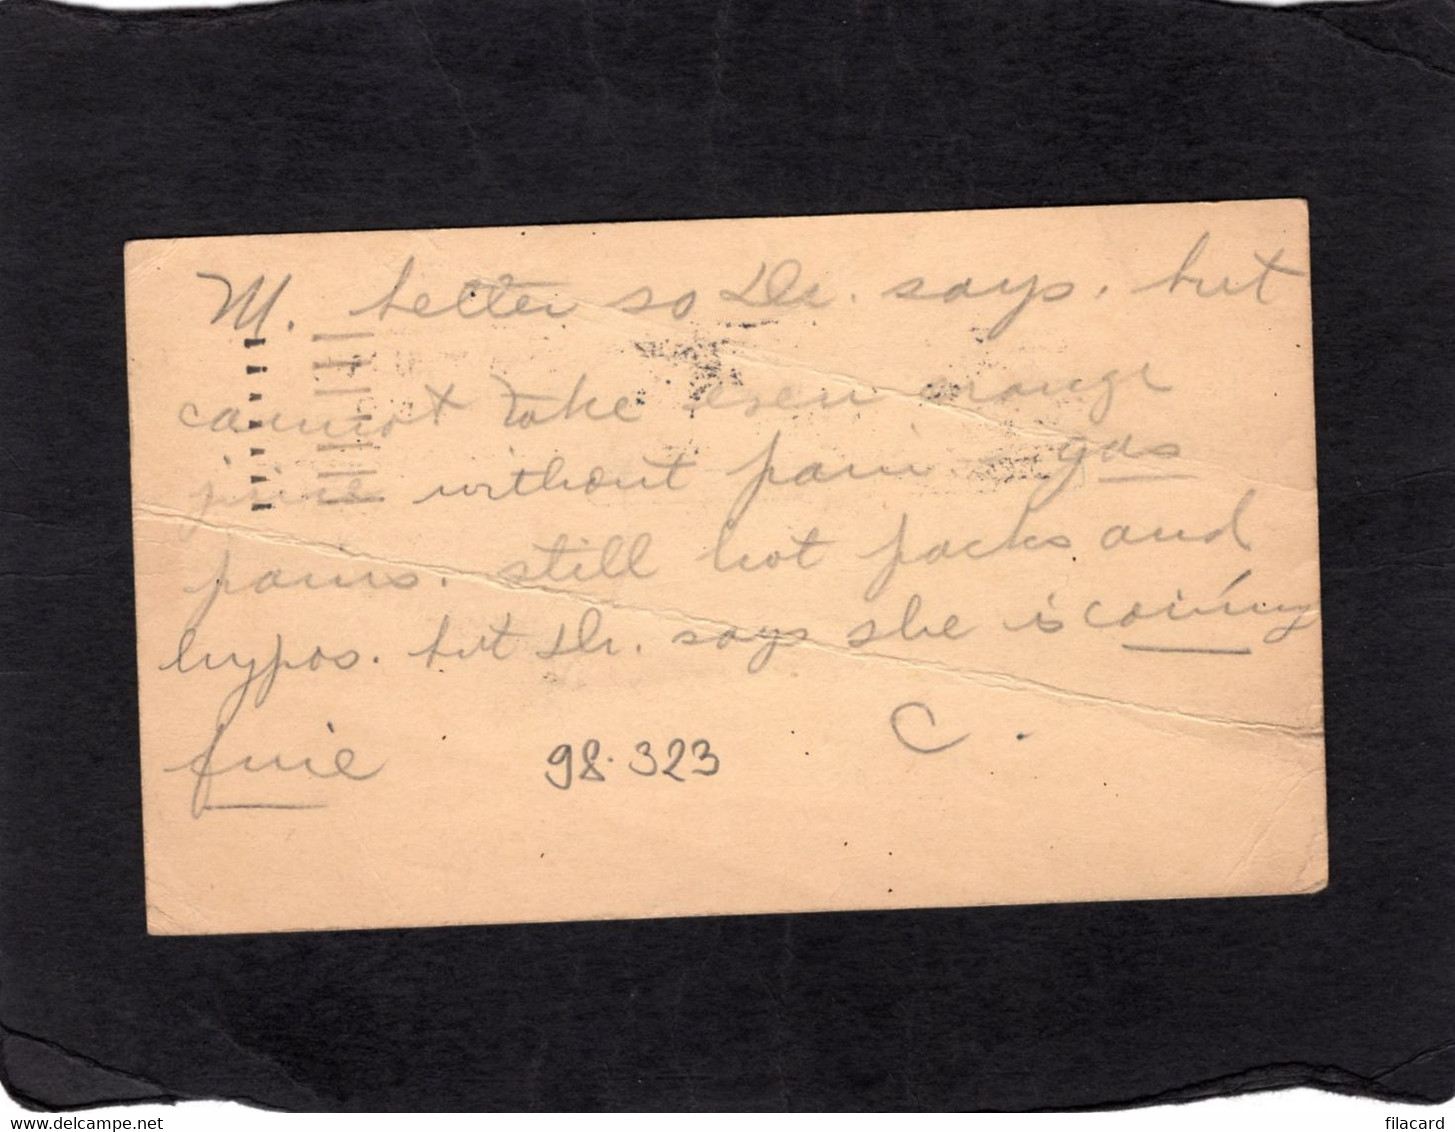 M. better so Dr. says. but
cannot take even orange
juice without pain - gas
pains. still hot packs and
hypos. but Dr. says she is coming
fine
98.323
C.
www.delcampe.net
filacard